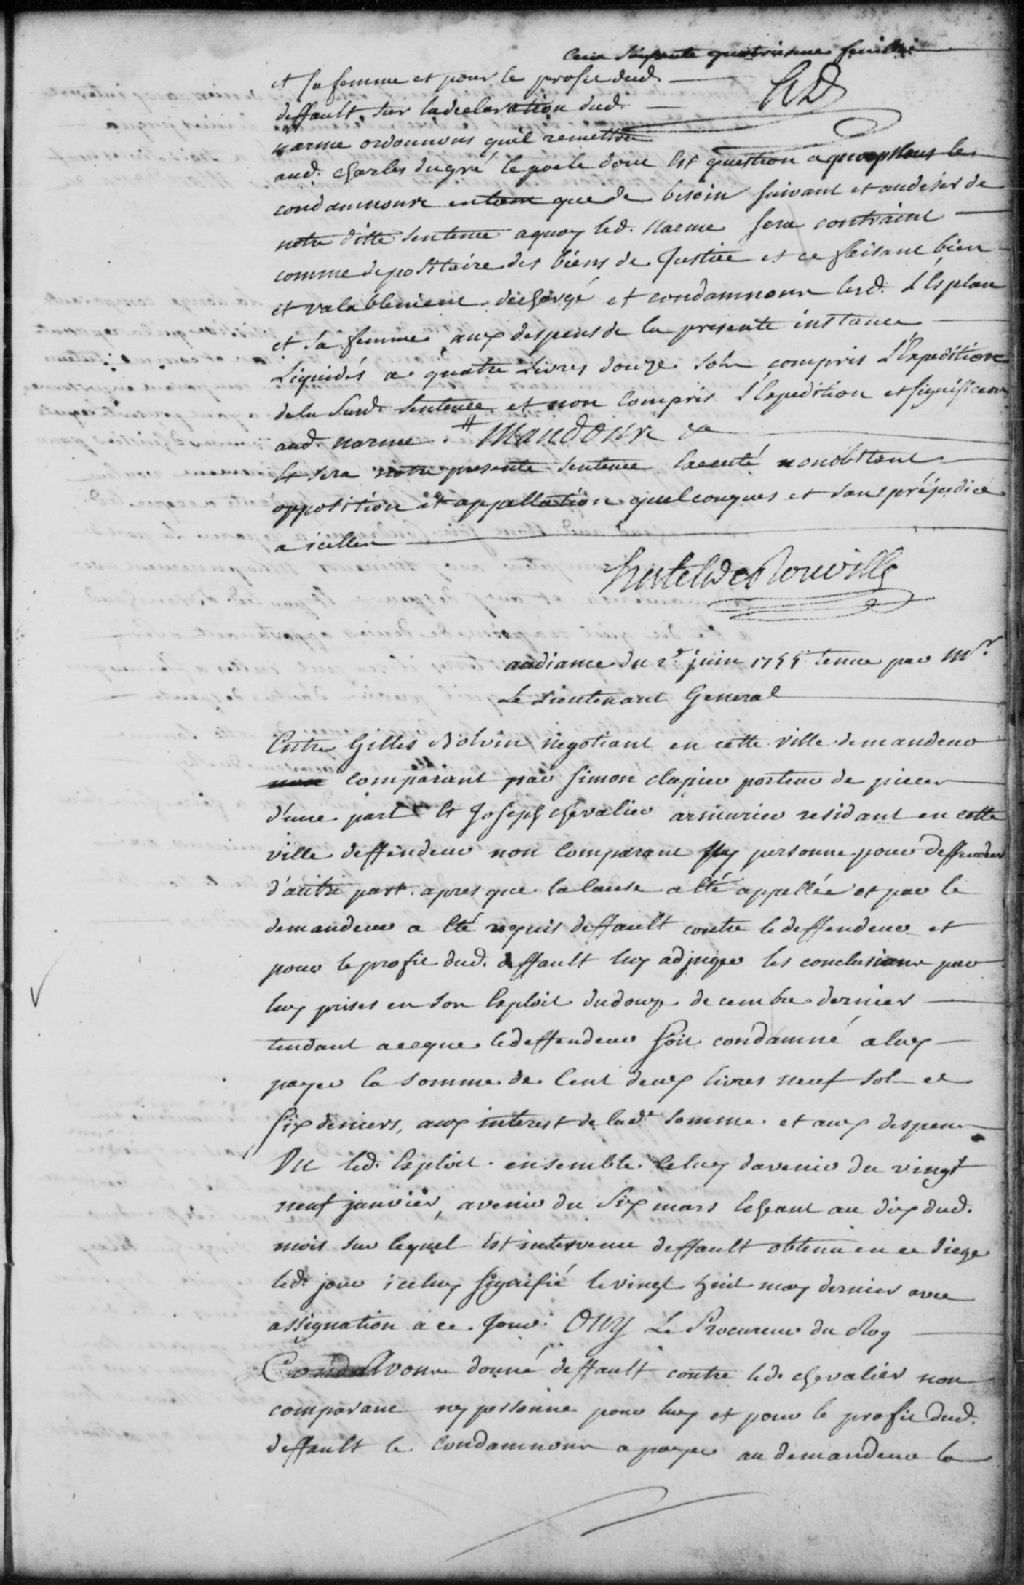 Cent soixante quatrieme feuillet
et sa femme et pour le profit dud.
deffault sur la declaration dud.
narme ordonnons quil remettra
aud. Charles dugré le poele dont est question a quoy nous le
condamnons entan que de besoin suivant et audesir de
notre ditte sentence a quoy led. narme sera contraint
comme depositaire des biens de Justice et ce faisant bien
et valablement dechargé et condamnons lesd. L'Esplan
et sa femme aux despens de la presente instance
Liquidés a quatre Livres douze sols compris L'Expedition
de la susd. sentence et non compris L'Expedition et signification
aud. narme. # Mandons &a
Et sera notre presente sentence executé nonobstant
opposition et appellation quelconques et sans préjudice
a icelles
hertel de Rouville
audiance du 2e juin 1755 tenue par Mr.
Le Lieutenant General
Entre Gilles Bolvin négotiant en cette ville demandeur
comparant par Simon clapier porteur de pieces
d'une part Et Joseph chevalier armurier residant en cette
ville deffendeur non comparant ny personne pour deffendeur
d'autre part. apres que la cause a été appellée et par le
demandeur a été requis deffault contre le deffendeur et
pour le profit dud. deffault luy adjuger les conclusions par
luy prises en son Exploit du douze decembre dernier
tendant a ce que le deffendeur soit condamné a luy
payer la somme de Cent deux livres neuf sols et
six deniers, aux interest de lad. somme et aux despens
Vu led. Exploit ensemble celuy davenir du vingt
neuf janvier, avenir du six mars Echeant au dix dud.
mois sur lequel Est intervenu deffault obtenu en ce siege
led. jour icelui signifié le vingt huit may dernier avec
assignation a ce jour. Ouy Le Procureur du Roy
Avons donné deffault contre led. chevalier non
comparant ny personne pour luy et pour le profit dud.
deffault le Condamnons a payer au demandeur la